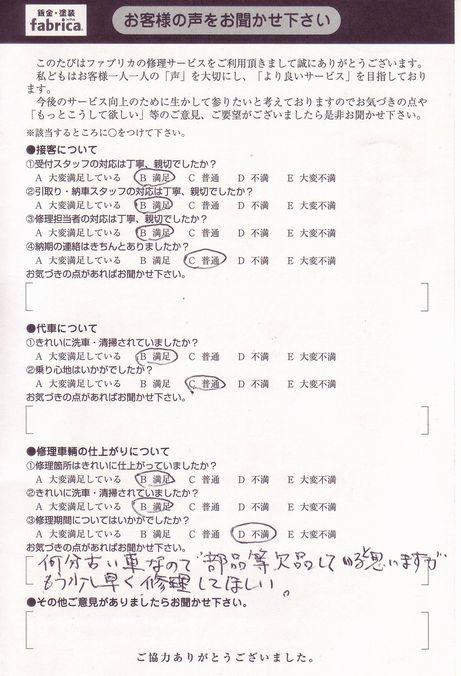 鈑金・塗装
fabrica.
お客様の声をお聞かせ下さい
このたびはファブリカの修理サービスをご利用頂きまして誠にありがとうございます。
私どもはお客様一人一人の「声」を大切にし、「より良いサービス」を目指しており
ます。
今後のサービス向上のために生かして参りたいと考えておりますのでお気づきの点や
「もっとこうして欲しい」等のご意見、ご要望がございましたら是非お聞かせ下さい。
※該当するところに〇をつけて下さい。
●接客について
①受付スタッフの対応は丁寧、親切でしたか？
A 大変満足している B 満足 C 普通 D 不満 E 大変不満
②引取り・納車スタッフの対応は丁寧、親切でしたか？
A 大変満足している B 満足 C 普通 D 不満 E 大変不満
③修理担当者の対応は丁寧、親切でしたか？
A 大変満足している B 満足 C 普通 D 不満 E 大変不満
④納期の連絡はきちんとありましたか？
A 大変満足している B 満足 C 普通 D 不満 E 大変不満
お気づきの点があればお聞かせ下さい。
●代車について
①きれいに洗車・清掃されていましたか？
A 大変満足している B 満足 C 普通 D 不満 E 大変不満
②乗り心地はいかがでしたか？
A 大変満足している B 満足 C 普通 D 不満 E 大変不満
お気づきの点があればお聞かせ下さい。
●修理車輌の仕上がりについて
①修理箇所はきれいに仕上がっていましたか？
A 大変満足している B 満足 C 普通 D 不満 E 大変不満
②きれいに洗車・清掃されていましたか？
A 大変満足している B 満足 C 普通 D 不満 E 大変不満
③修理期間についてはいかがでしたか？
A 大変満足している B 満足 C 普通 D 不満 E 大変不満
お気づきの点があればお聞かせ下さい。
何分古い車なので部品等欠品して思いますが
もう少し早く修理してほしい。
●その他ご意見がありましたらお聞かせ下さい。
ご協力ありがとうございました。